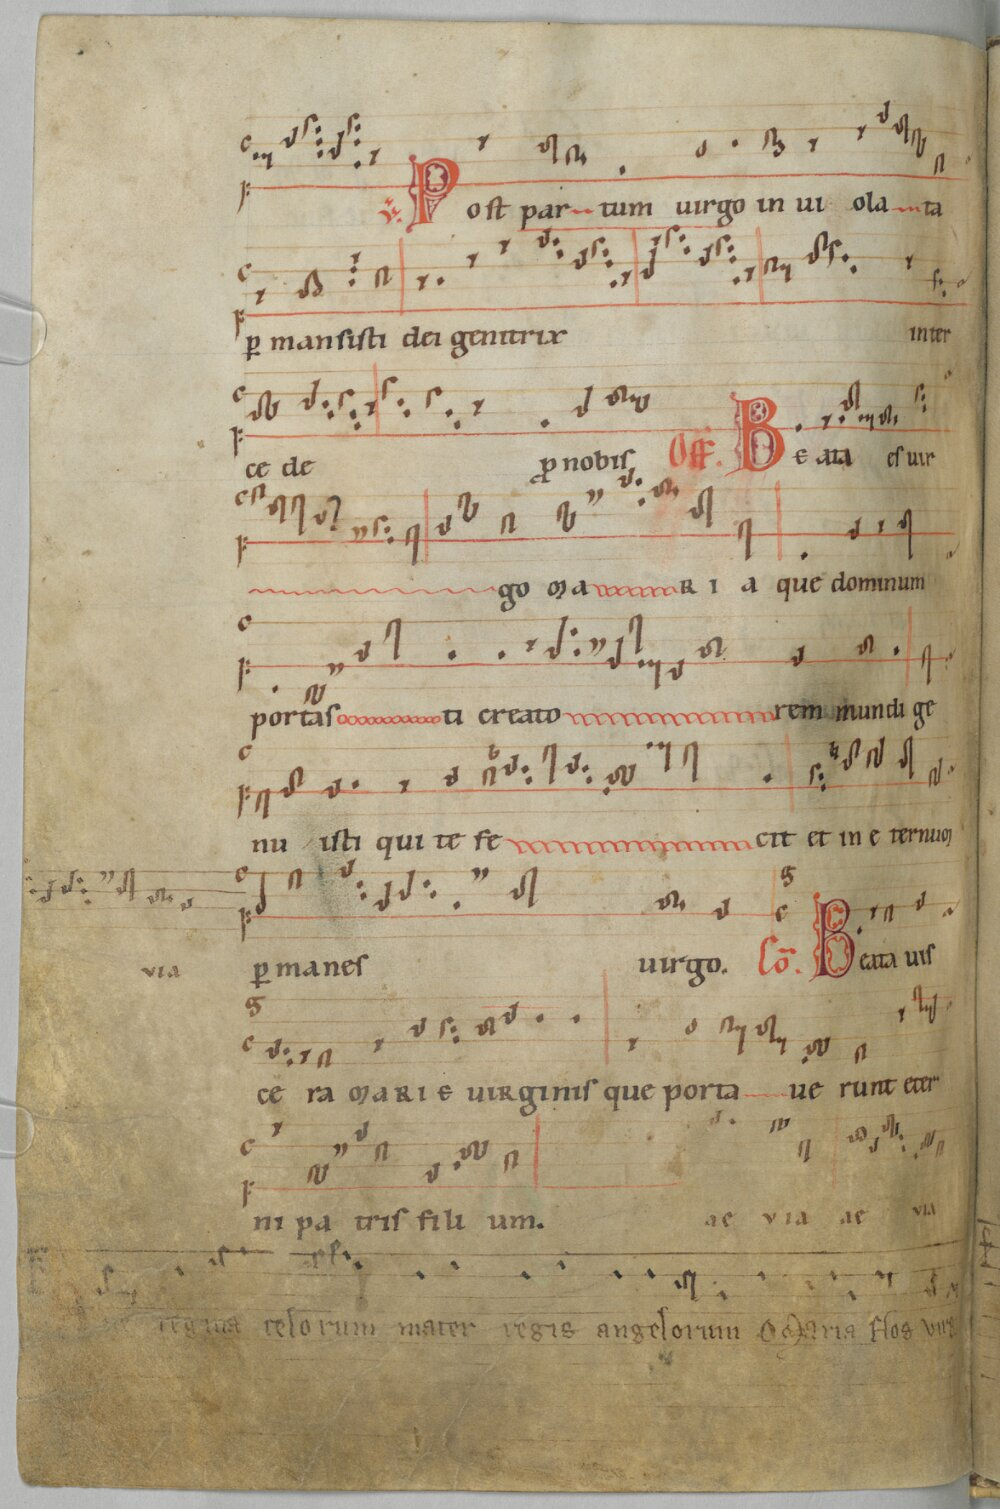 V. Post partum uirgo in ui ola ta
p mansisti dei genitrix inter
ce de p nobis Off. Beata es uir
go MaRIa que dominum
portas ti creato rem mundi ge
nu isti qui te fe cit et in e ternum
via p manes uirgo. Co. Beata uis
ce ra MaRIe uiRginis que porta ue runt eter
ni pa tris fili um. ae via ae via
regina celorum mater regis angelorum o Maria flos virg